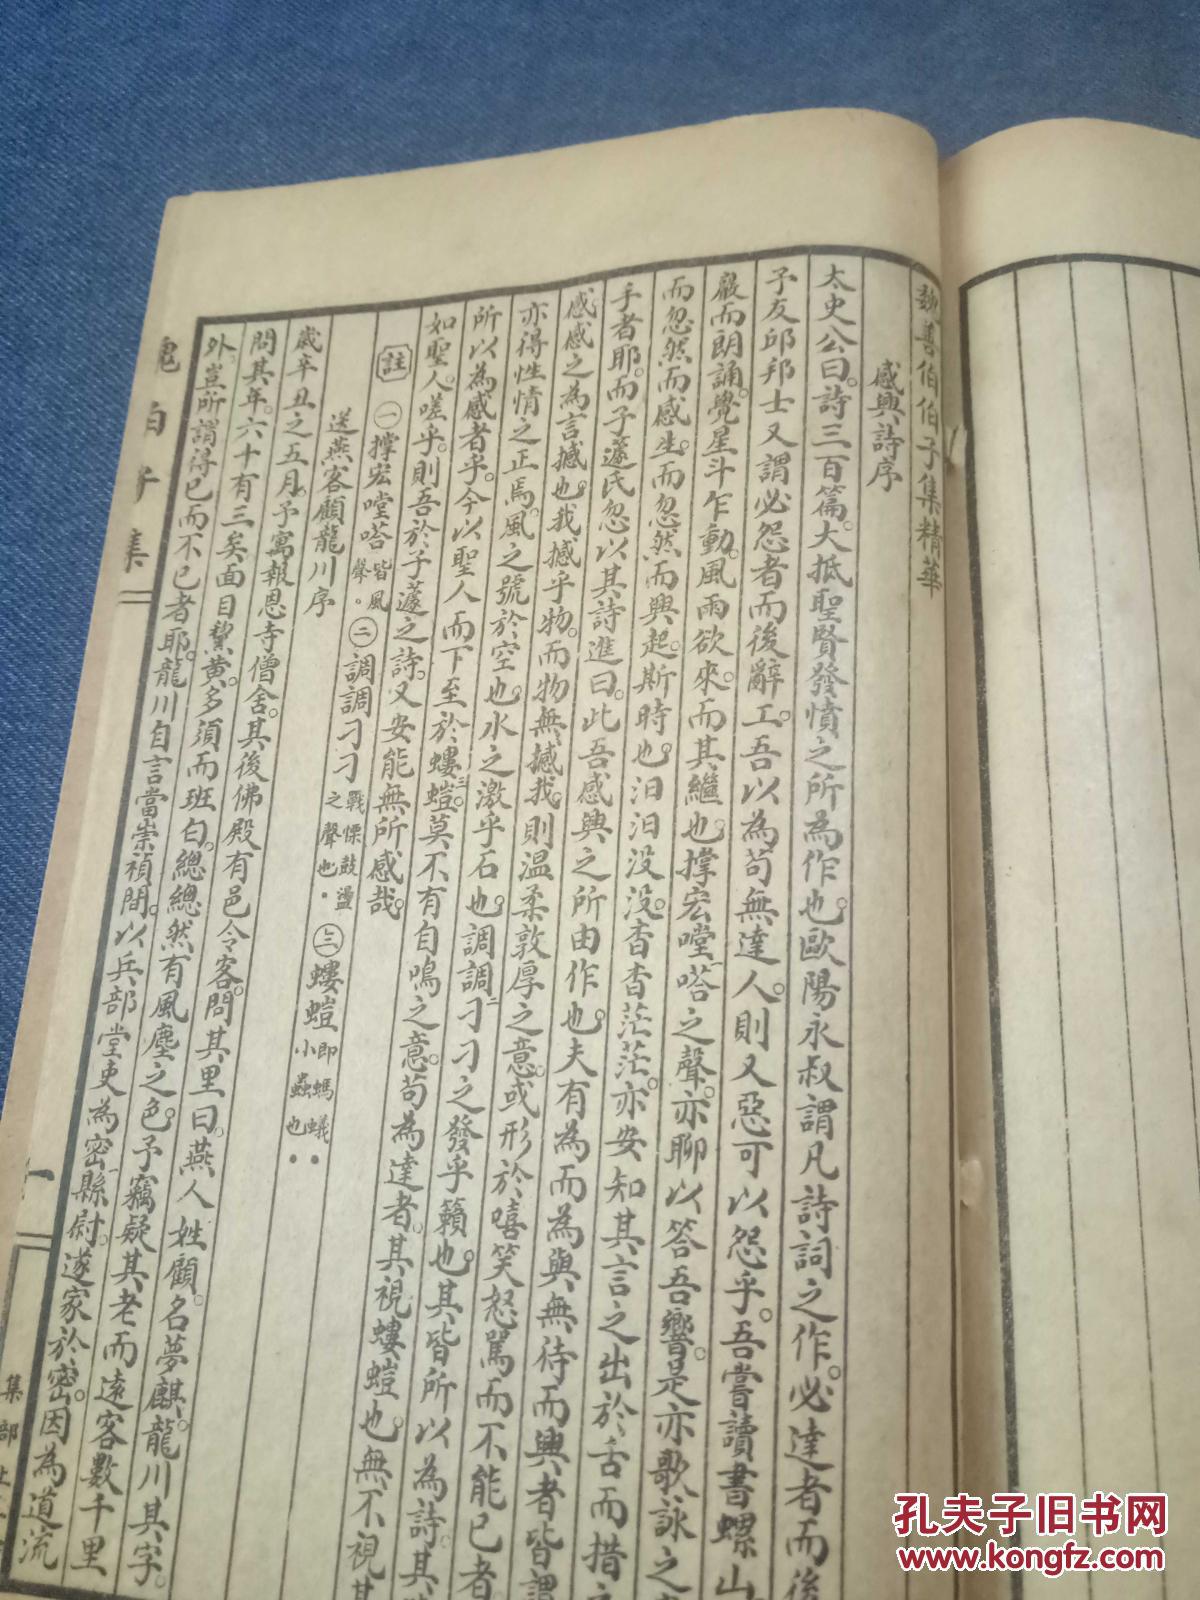 魏善伯伯子集精華
感興詩序
太史公曰。詩三百篇。大抵聖賢發憤之所為作也。歐陽永叔謂凡詩詞之作。必達者而後
予友邱邦士又謂必怨者而後辭工。吾以為苟無達人。則又惡可以怨乎。吾嘗讀書螺山
嚴而朗誦。覺星斗乍動。風雨欲來。而其繼也。撑宏嘡嗒之聲。亦聊以答吾響。是亦歌詠之
而忽然而感生。而忽然而興起。斯時也。汨汨没没。杳杳茫茫。亦安知其言之出於舌而措之
手者耶。而子蘧氏忽以其詩進曰。此吾感興之所由作也。夫有為而為與無待而興者皆謂
感感之為言撼也。我撼乎物。而物無撼我。則温柔敦厚之意。或形於嘻笑怒罵而不能已者
亦得性情之正焉。風之號於空也。水之激乎石也。調調刁刁之發乎籟也。其皆所以為詩。其
所以為感者乎。今以聖人而下至於螻螘。莫不有自鳴之意。苟為達者。其視螻螘也。無不視其
如聖人。嗟乎。則吾於子蘧之詩。又安能無所感哉。
註 ㊀撑宏嘡嗒皆風聲。㊁調調刁刁戰慄鼓盪之聲也。㊂螻螘即螞蟻小蟲也。
送燕客顧龍川序
歲辛丑之五月。予寓報恩寺僧舍。其後佛殿有邑令客。問其里曰。燕人姓顧。名夢麒。龍川其字。
問其年。六十有三矣。面目黧黄。多須而班白。總總然有風塵之色。予竊疑其老而遠客數千里
外。豈所謂得已而不已者耶。龍川自言當崇禎間。以兵部堂吏為密縣尉。遂家於密。因為道流
魏伯子集
十
集部
孔夫子旧书网
www.kongfz.com